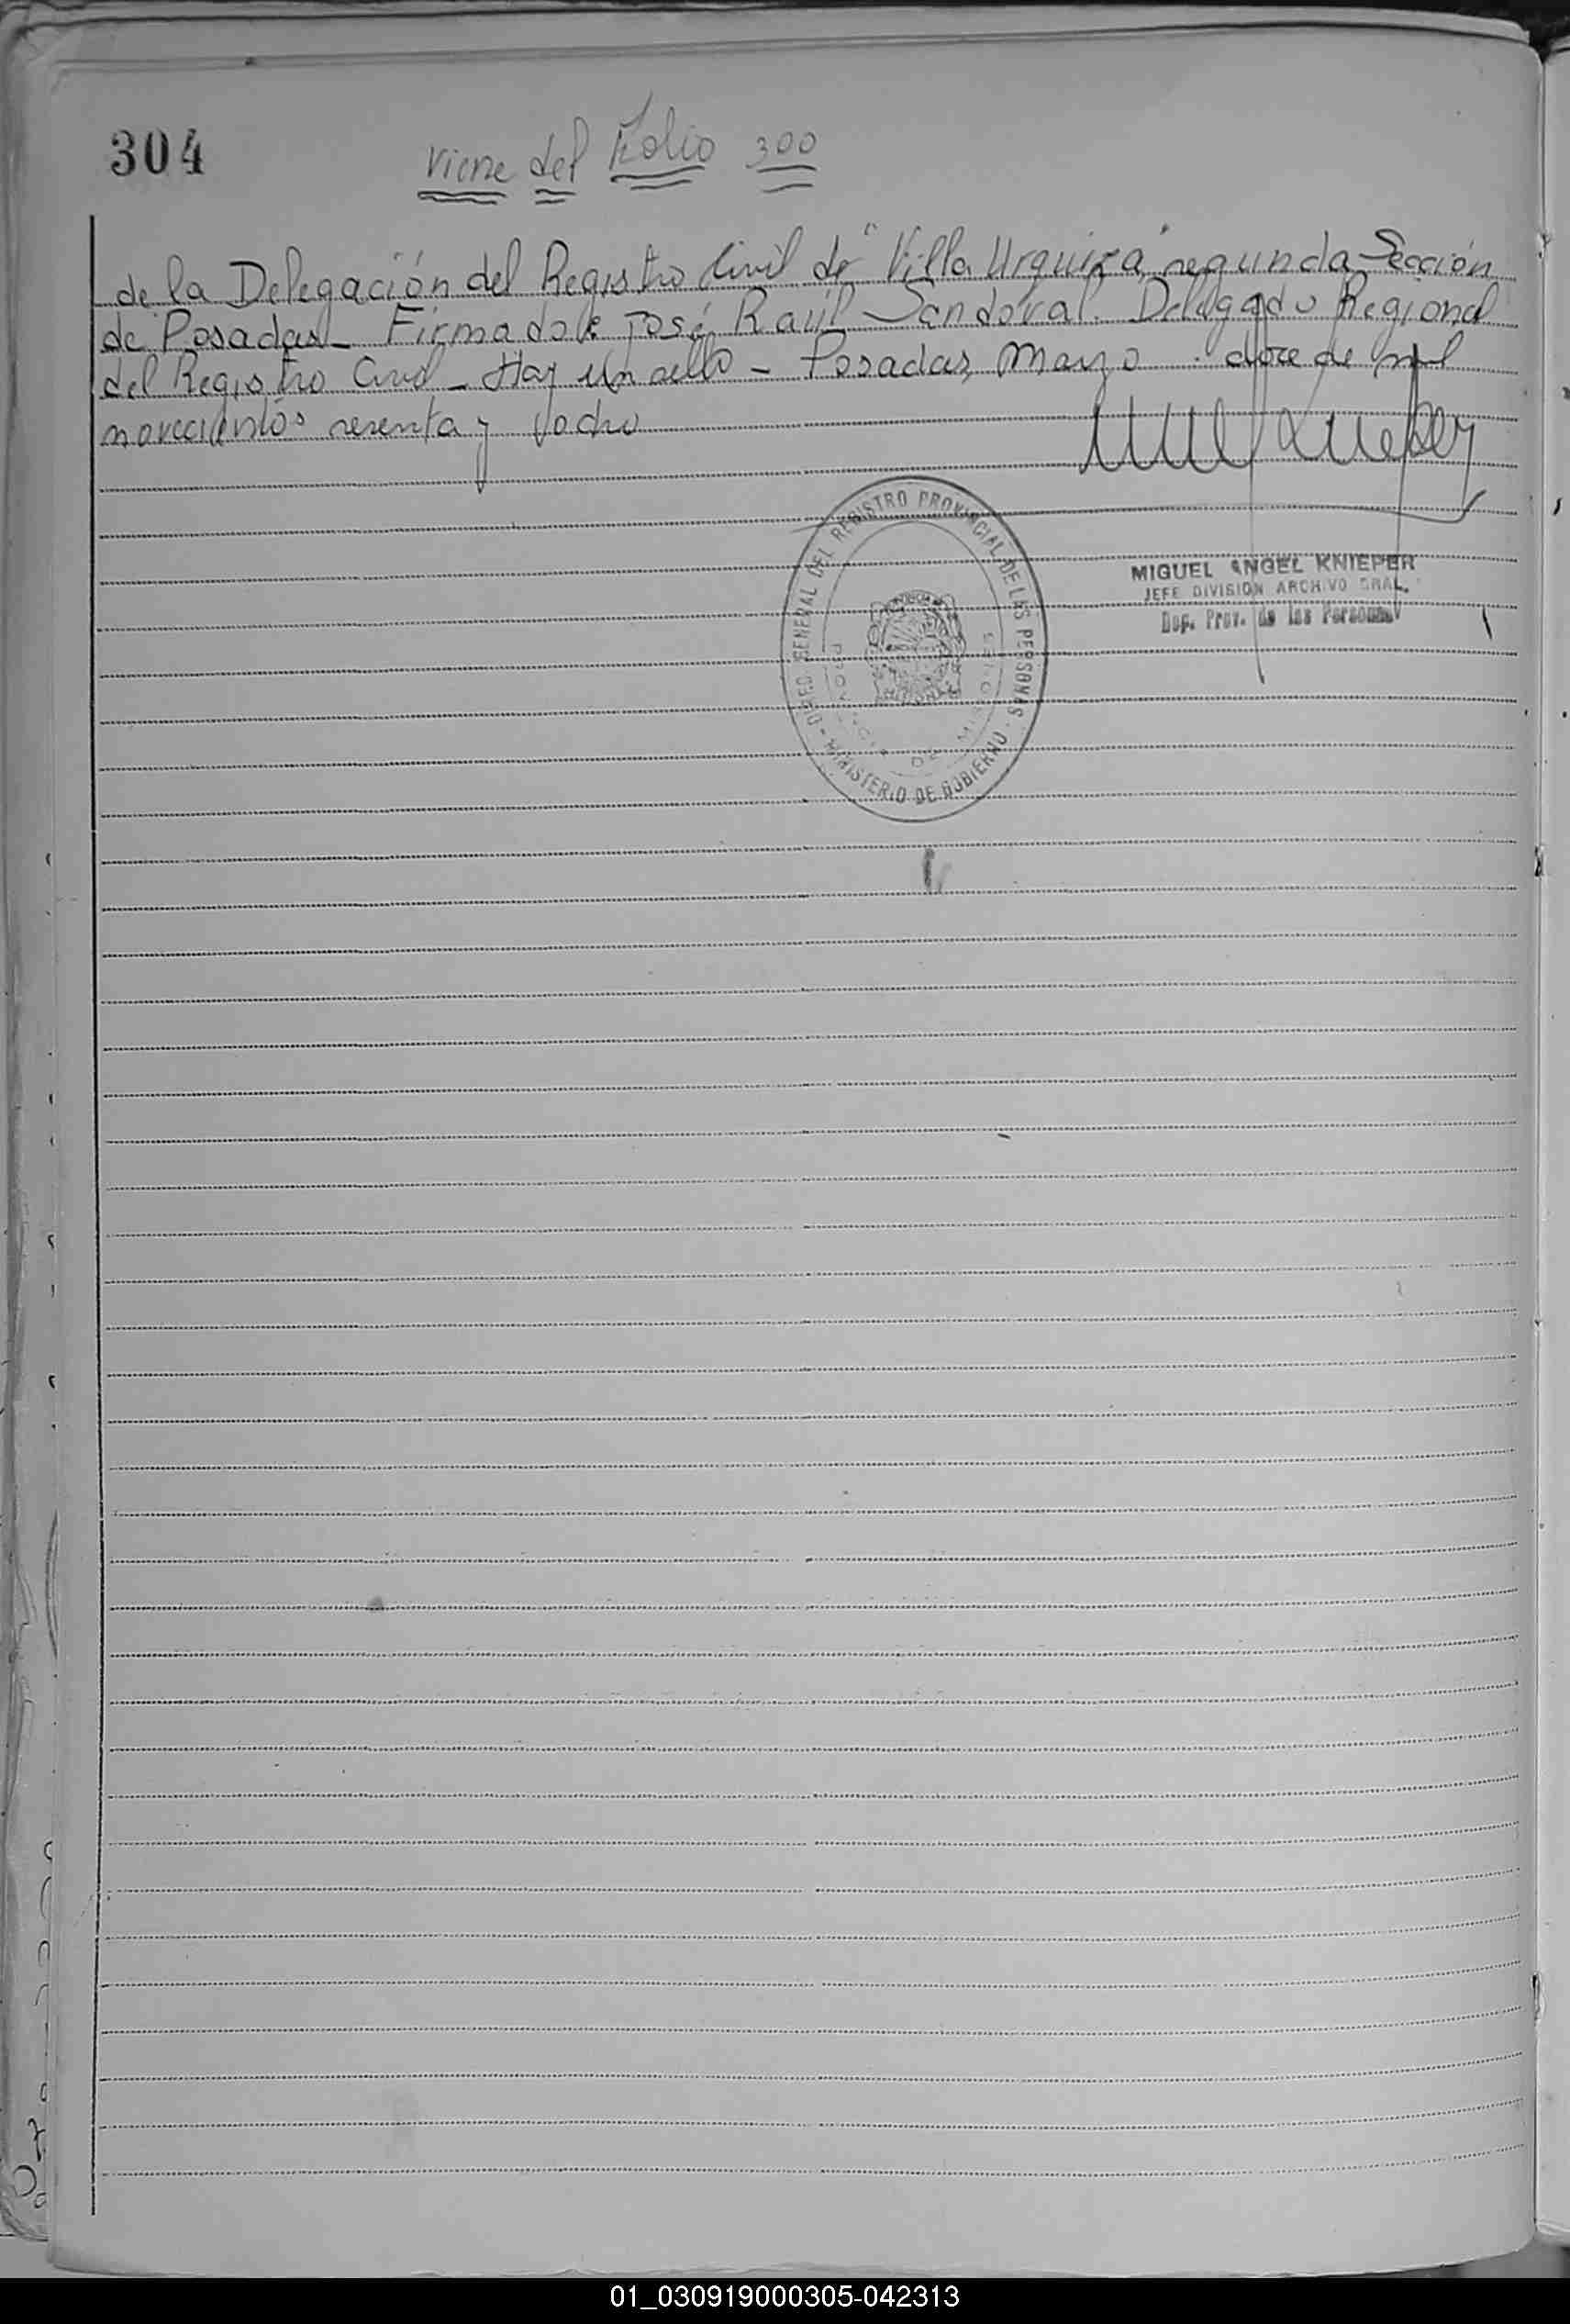 304
Viene del Folio 300
de la Delegación del Registro Civil de "Villa Urquiza" segunda Sección
de Posadas - Firmado: José Raúl Sandoval. Delegado Regional
del Registro Civil - Hay un sello - Posadas, Marzo doce de mil
novecientos sesenta y ocho
MIGUEL ANGEL KNIEPER
JEFE DIVISION ARCHIVO GRAL.
Prov. de las Personas
GENERAL DEL REGISTRO PROVINCIAL DE LAS PERSONAS
MINISTERIO DE GOBIERNO
PROVINCIA DE MISIONES
01_030919000305-042313